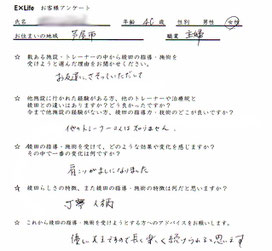 E×Life お客様アンケート
氏名 年齢 46歳 性別 男性 女性
お住まいの地域 芦屋市 職業 主婦
☆ 数ある施設・トレーナーの中から岐田の指導・施術を
受けようと選んだ理由をお聞かせください。
お友達にさそっていただいて
☆ 他施設に行かれた経験がある方、他のトレーナーや治療院と
岐田との違いはありますか?どう良かったですか?
今まで他施設経験がない方、岐田の指導力・技術のどこが良いですか?
他のトレーナーさんは知りません。
☆ 岐田の指導・施術を受けて、どのような効果や変化を感じますか?
その中で一番の変化は何ですか?
肩こりがましになりました
☆ 岐田らしさの特徴、また岐田の指導・施術の特徴は何だと思いますか?
丁寧 人柄
☆ これから岐田の指導・施術を受けようとする方へのアドバイスをお願いします。
優しい先生ですので長く楽しく続けられると思います